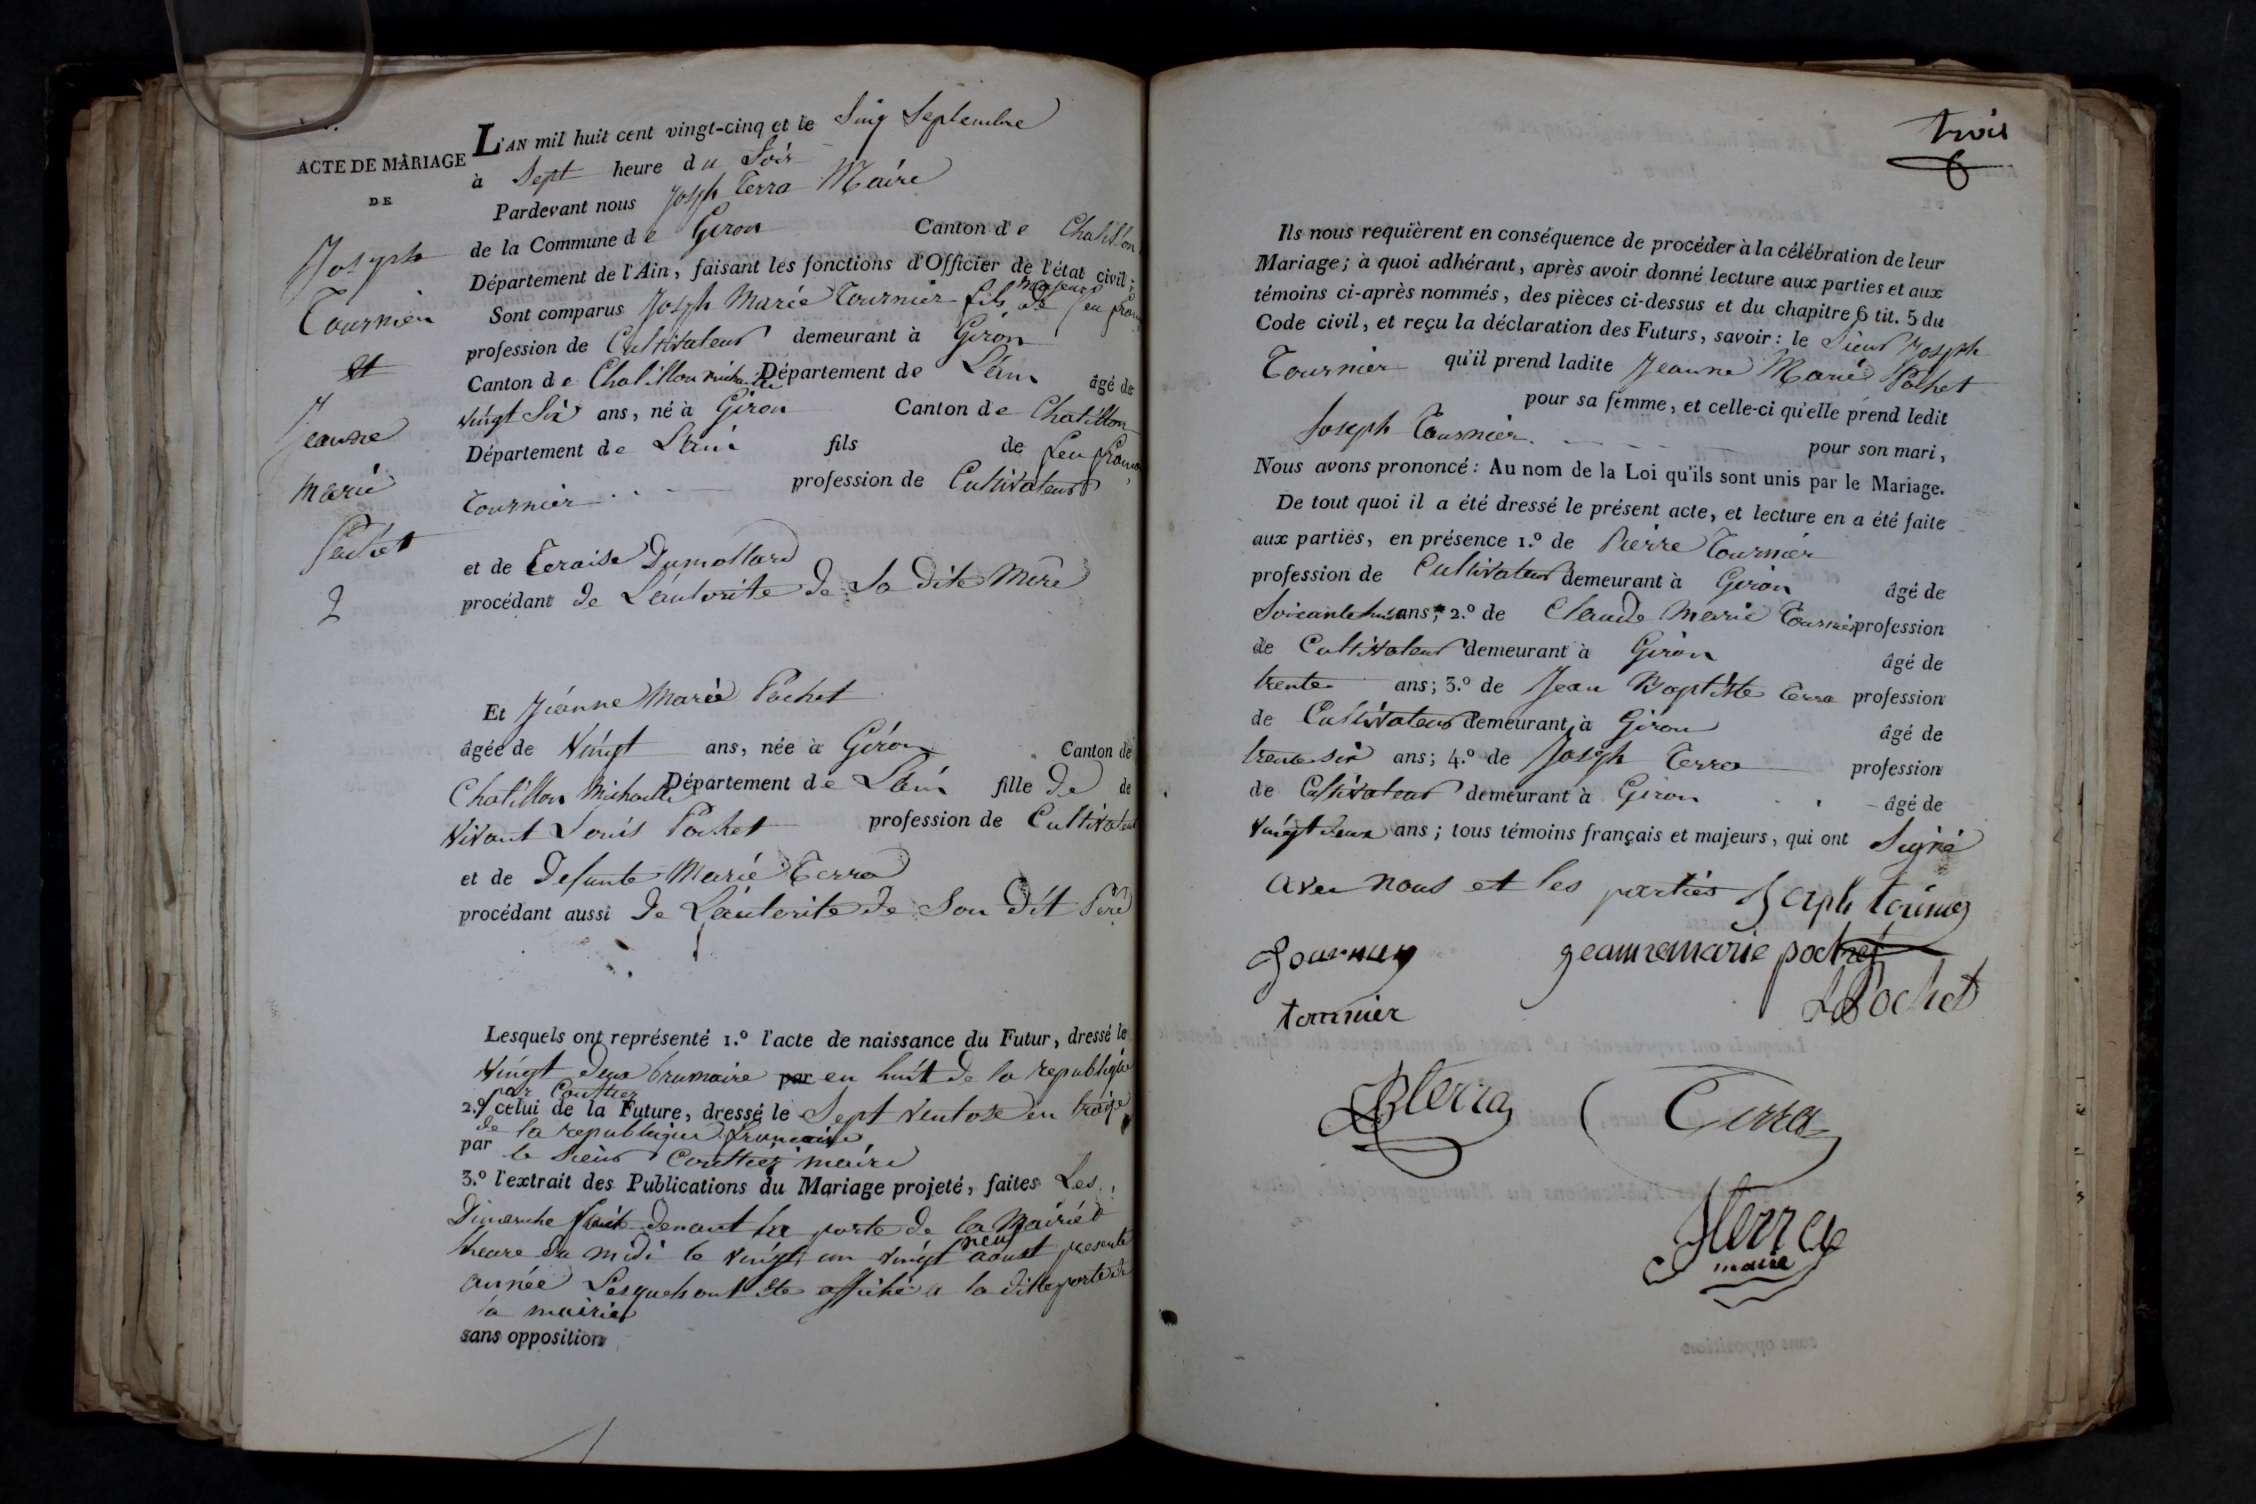 ACTE DE MARIAGE
DE
Joseph
Tournier
et
Jeanne
Marie
Pochet
2
L'AN mil huit cent vingt-cinq et le Sinq Septembre
à Sept heure du Soir
Pardevant nous Joseph Terra Maire
de la Commune de Giron Canton de Chatillon
Département de l'Ain, faisant les fonctions d'Officier de l'état civil;
Sont comparus Joseph Marie Tournier fils majeur de feu
profession de Cultivateur demeurant à Giron
Canton de Chatillon Michaille Département de Lain âgé de
vingt Six ans, né à Giron Canton de Chatillon
Département de Lain fils de feu
Tournier profession de Cultivateur
et de Teraise Dumollard
procédant de Lautorite de Sa dite Mere
Et Jeanne Marie Pochet
âgée de Vingt ans, née à Giron Canton de
Chatillon Michaille Département de Lain fille de de
Vivant Louis Pochet profession de Cultivateur
et de defunte Marie Terra
procédant aussi de Lautorite de Son dit Pere
Lesquels ont représenté 1.º l'acte de naissance du Futur, dressé le
Vingt deux brumaire par en huit de la republique
par Couttier
2.º celui de la Future, dressé le Sept Ventose en traize
de la republique francaise
par le Sieur Couttier maire
3.º l'extrait des Publications du Mariage projeté, faites Les
Dimanche devant la porte de la Mairie
heure da midi le vingt un vingt neuf aoust presente
année Lesquels ont ete affiché a la ditte porte de
la mairie
sans opposition
trois
Ils nous requièrent en conséquence de procéder à la célébration de leur
Mariage; à quoi adhérant, après avoir donné lecture aux parties et aux
témoins ci-après nommés, des pièces ci-dessus et du chapitre 6 tit. 5 du
Code civil, et reçu la déclaration des Futurs, savoir: le Sieur Joseph
Tournier qu'il prend ladite Jeanne Marie Pochet
pour sa femme, et celle-ci qu'elle prend ledit
Joseph Tournier pour son mari,
Nous avons prononcé: Au nom de la Loi qu'ils sont unis par le Mariage.
De tout quoi il a été dressé le présent acte, et lecture en a été faite
aux parties, en présence 1.º de Pierre Tournier
profession de Cultivateur demeurant à Giron âgé de
Soixante huit ans; 2.º de Claude Marie Tournier profession
de Cultivateur demeurant à Giron âgé de
trente ans; 3.º de Jean Baptiste Terra profession
de Cultivateur demeurant à Giron âgé de
trente six ans; 4.º de Joseph Terra profession
de Cultivateur demeurant à Giron âgé de
Vingt deux ans; tous témoins français et majeurs, qui ont Signé
avec nous et les parties
geanne marie pochet
tournier
Pochet
Terra
JTerra
maire